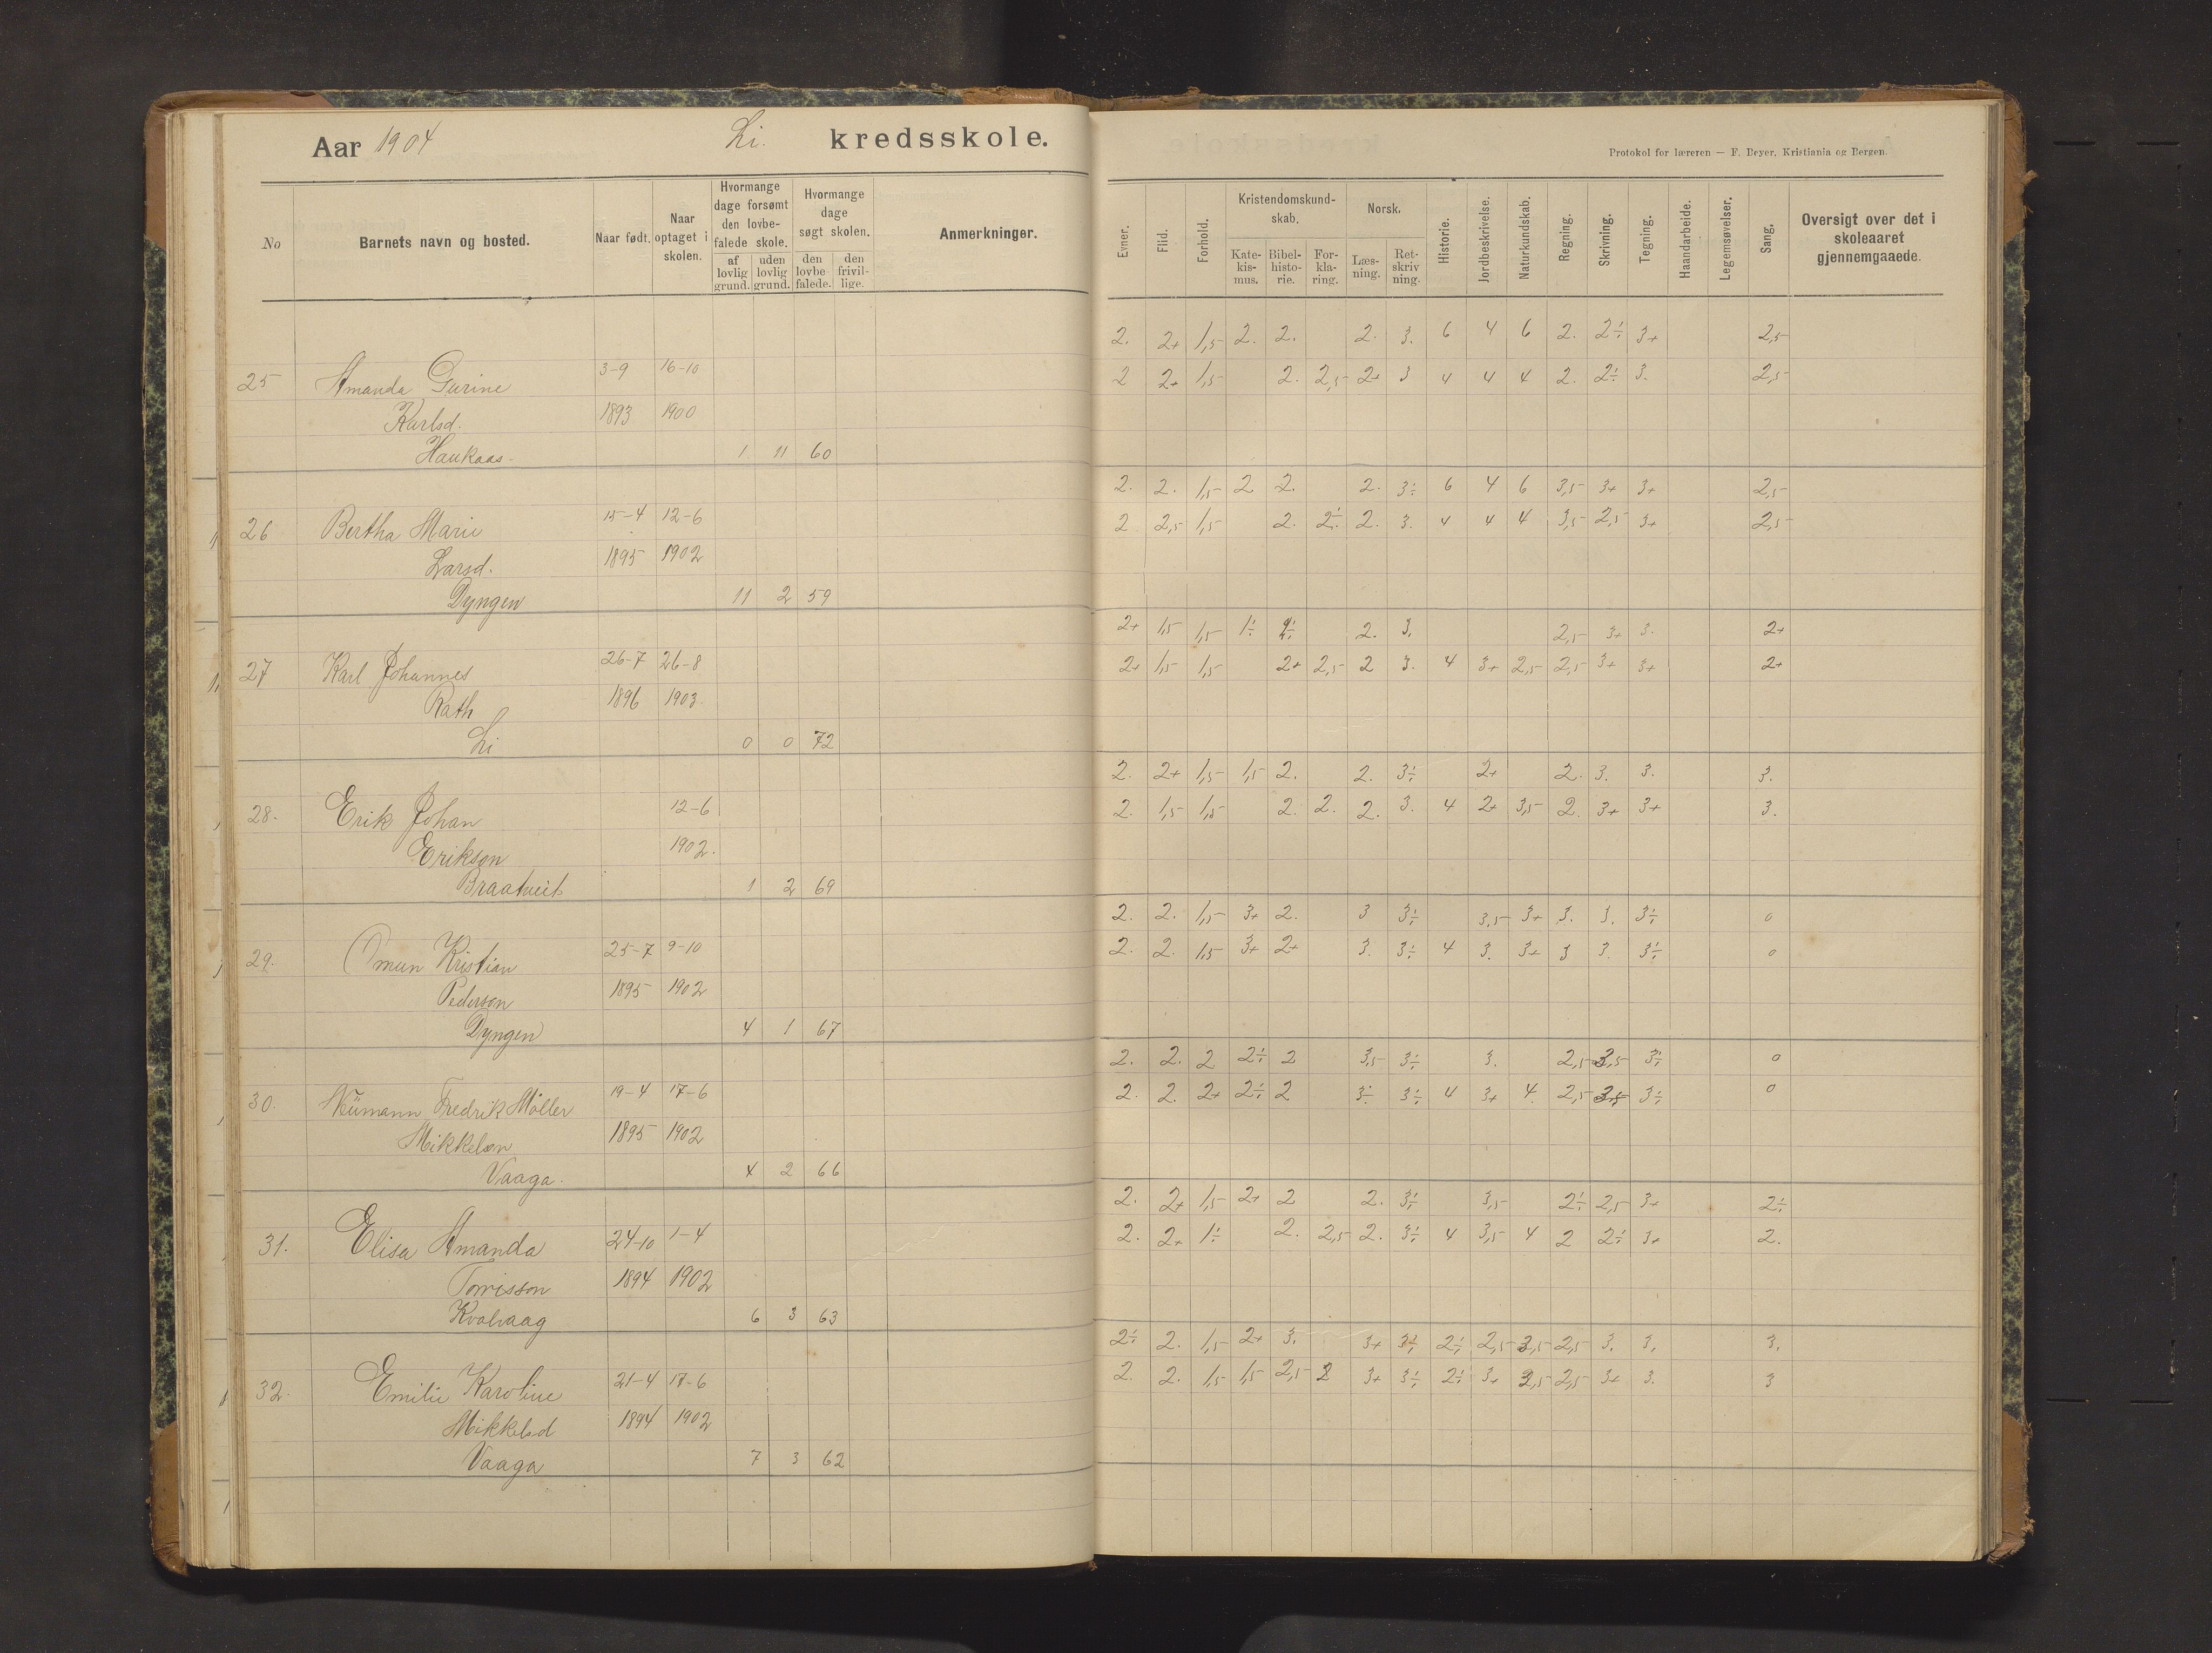 Aar 1904 Li. kredsskole.
Protokol for læreren — F. Beyer, Kristiania og Bergen.
No Barnets navn og bosted. Naar født. Naar optaget i skolen. Hvormange dage forsømt den lovbefalede skole. af lovlig grund. uden lovlig grund. Hvormange dage søgt skolen. den lovbefalede. den frivillige. Anmerkninger.
Evner. Flid. Forhold. Kristendomskundskab. Katekismus. Bibelhistorie. Forklaring. Norsk. Læsning. Retskrivning. Historie. Jordbeskrivelse. Naturkundskab. Regning. Skrivning. Tegning. Haandarbeide. Legemsøvelser. Sang. Oversigt over det i skoleaaret gjennemgaaede.
2. 2+ 1,5 2. 2. 2. 3. 6 4 6 2. 2÷ 3+ 2,5
25 Amanda Gurine 3-9 16-10 2 2+ 1,5 2. 2,5 2+ 3 4 4 4 2. 2÷ 3. 2,5
Karlsd. 1893 1900
Haukaas 1 11 60
2. 2. 1,5 2 2. 2. 3÷ 6 4 6 3,5 3+ 3+ 2,5
26 Bertha Marie 15-4 12-6 2 2,5 1,5 2. 2÷ 2. 3. 4 4 4 3,5 2,5 3+ 2,5
Larsd. 1895 1902
Dyngen 11 2 59
2+ 1,5 1,5 1÷ 2. 3. 2,5 3+ 3. 2+
27 Karl Johannes 26-7 26-8 2+ 1,5 1,5 2+ 2,5 2 3. 4 3+ 2,5 2,5 3+ 3+ 2+
Rath 1896 1903.
Li 0 0 72
2. 2+ 1,5 1,5 2. 2. 3÷ 2+ 2. 3. 3. 3.
28. Erik Johan 12-6 2. 1,5 1,5 2. 2. 2. 3. 4 2+ 3,5 2. 3+ 3+ 3.
Erikson 1902.
Braatveit 1 2 69
2. 2. 1,5 3+ 2. 3 3÷ 3,5 3+ 3. 3. 3÷ 0
29. Omun Kristian 25-7 9-10 2. 2. 1,5 3+ 2+ 3. 3÷ 4 3. 3+ 3 3. 3÷ 0
Pederson 1895 1902
Dyngen 4 1 67
2. 2. 2 2÷ 2 3,5 3÷ 3. 2,5 3÷ 0
30. Nümann Fredrik Møller 19-4 17-6 2. 2. 2+ 2÷ 2 3÷ 3÷ 4 3+ 4. 2,5 3÷ 0
Mikkelsen 1895 1902
Vaaga. 4 2 66
2. 2+ 1,5 2+ 2 2. 3÷ 3,5 2÷ 2,5 3+ 2÷
31. Elisa Amanda 24-10 1-4 2. 2+ 1÷ 2. 2,5 2. 3÷ 4 3,5 4 2 2÷ 3+ 2.
Torrisson 1894 1902
Kvalvaag 6 3 63
2÷ 2. 1,5 2+ 3. 3+ 3÷ 2÷ 2,5 3,5 2,5 3. 3. 3.
32. Emilie Karoline 21-4 17-6 2. 2. 1,5 1,5 2,5 2 3+ 3÷ 2÷ 3+ 2,5 3+ 3. 3
Mikkelsd 1894 1902
Vaaga 7 3 62